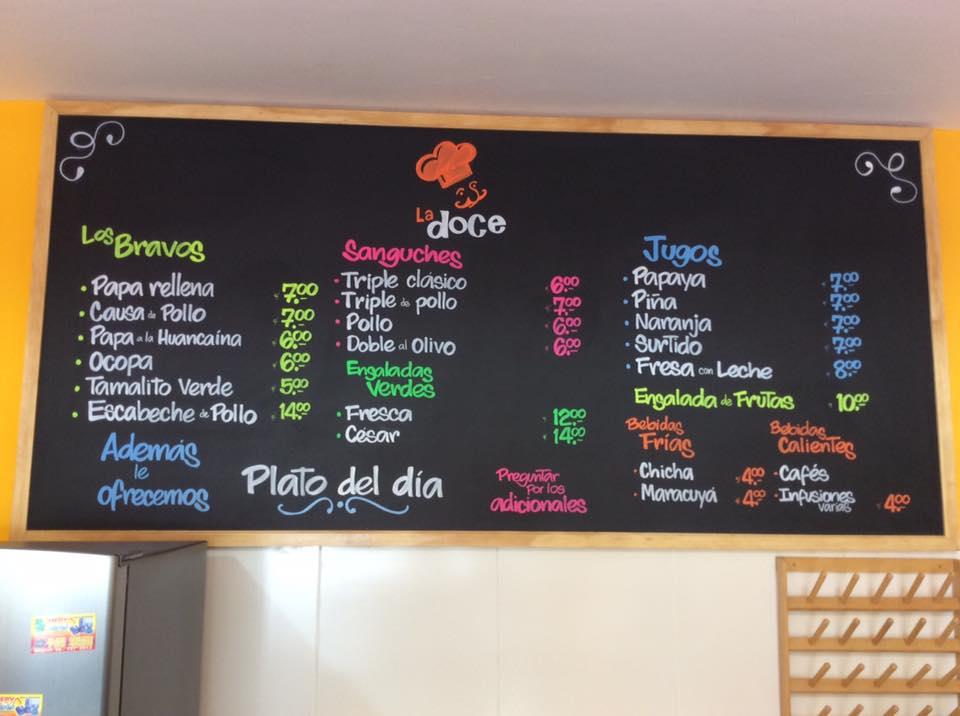 La doce
Los Bravos
• Papa rellena 7.00
• Causa de Pollo 7.00
• Papa a la Huancaína 6.00
• Ocopa 6.00
• Tamalito Verde 5.00
• Escabeche de Pollo 14.00
Además
le
ofrecemos
Plato del día
Sanguches
• Triple clásico 6.00
• Triple de pollo 7.00
• Pollo 6.00
• Doble al Olivo 6.00
Ensaladas
Verdes
• Fresca 12.00
• César 14.00
Preguntar
por los
adicionales
Jugos
• Papaya 7.00
• Piña 7.00
• Naranja 7.00
• Surtido 7.00
• Fresa con Leche 8.00
Ensalada de Frutas 10.00
Bebidas
Frías
• Chicha 4.00
• Maracuyá 4.00
Bebidas
Calientes
• Cafés
• Infusiones
varias 4.00